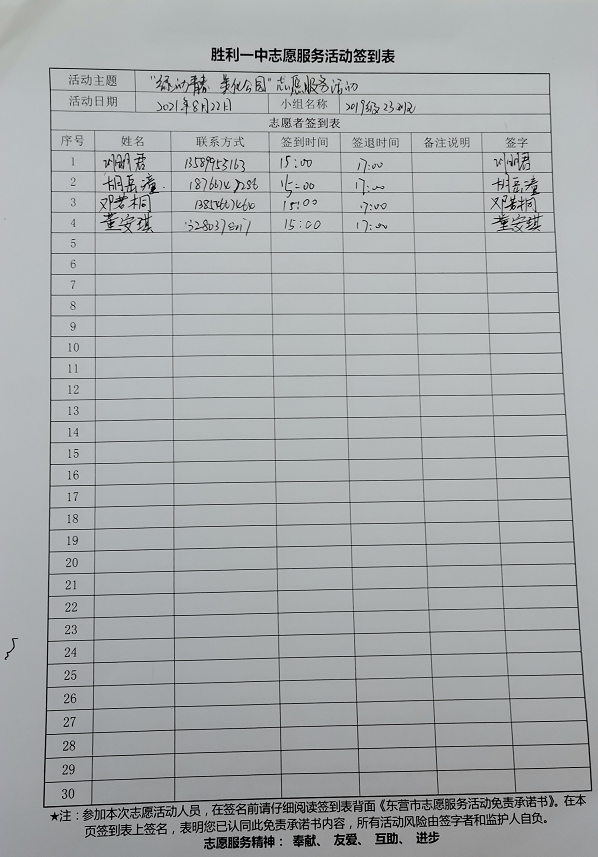 胜利一中志愿服务活动签到表
活动主题 "绿动青春 美化公园"志愿服务活动
活动日期 2021年8月22日 小组名称 2019级23班
志愿者签到表
序号 姓名 联系方式 签到时间 签退时间 备注说明 签字
1 刘明君 13589953163 15:00 17:00 刘明君
2 胡岳潼 15:00 17:00 胡岳潼
3 邓若桐 15:00 17:00 邓若桐
4 董安琪 15:00 17:00 董安琪
5
6
7
8
9
10
11
12
13
14
15
16
17
18
19
20
21
22
23
24
25
26
27
28
29
30
★注：参加本次志愿活动人员，在签名前请仔细阅读签到表背面《东营市志愿服务活动免责承诺书》。在本
页签到表上签名，表明您已认同此免责承诺书内容，所有活动风险由签字者和监护人自负。
志愿服务精神： 奉献、 友爱、 互助、 进步